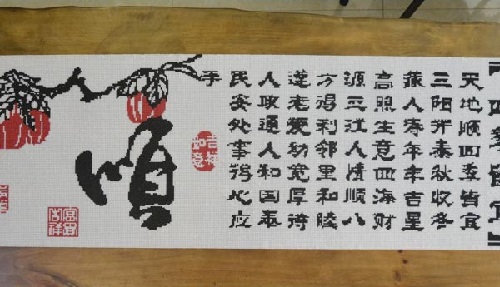 四季皆宜
天地顺四季皆宜
三阳开泰秋收冬
藏人寿年丰吉星
高照生意四海财
源三江人情顺八
方得利邻里和睦
遵老爱幼宽厚待
人政通人和国泰
民安处事得心应
手
吉祥如意
順